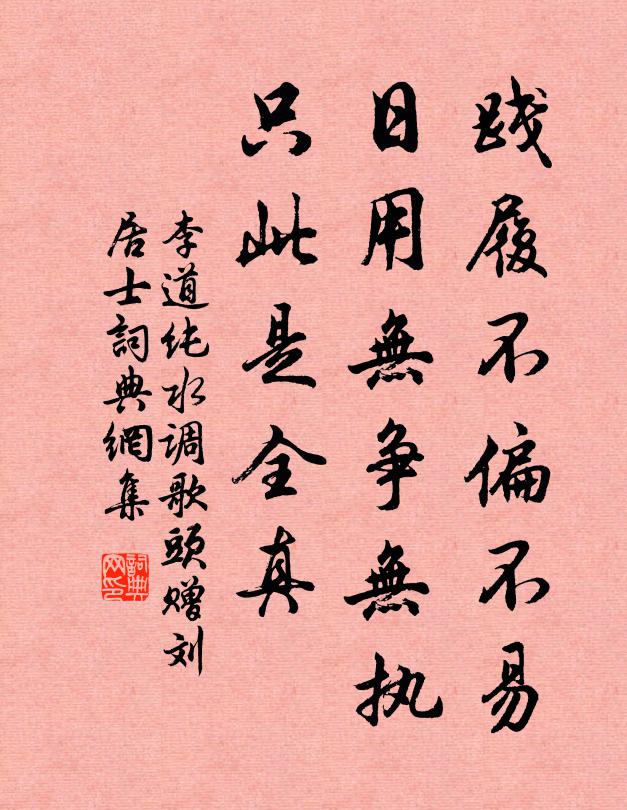 践履不偏不易
日用無争無执
只此是全真
李道纯水调歌頭赠刘
居士詞典網集
詞典网印